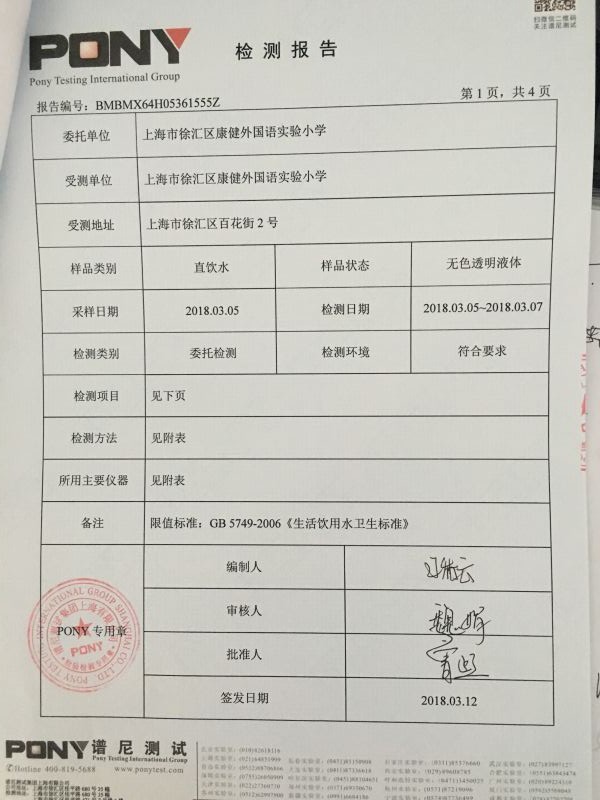 扫微信二维码
关注谱尼测试
PONY
Pony Testing International Group
检测报告
报告编号：BMBMX64H05361555Z
第1页，共4页
委托单位 上海市徐汇区康健外国语实验小学
受测单位 上海市徐汇区康健外国语实验小学
受测地址 上海市徐汇区百花街2号
样品类别 直饮水 样品状态 无色透明液体
采样日期 2018.03.05 检测日期 2018.03.05~2018.03.07
检测类别 委托检测 检测环境 符合要求
检测项目 见下页
检测方法 见附表
所用主要仪器 见附表
备注 限值标准：GB 5749-2006《生活饮用水卫生标准》
编制人
审核人
PONY 专用章
PONY
批准人
签发日期 2018.03.12
PONY 谱尼测试
Hotline 400-819-5688 www.ponytest.com